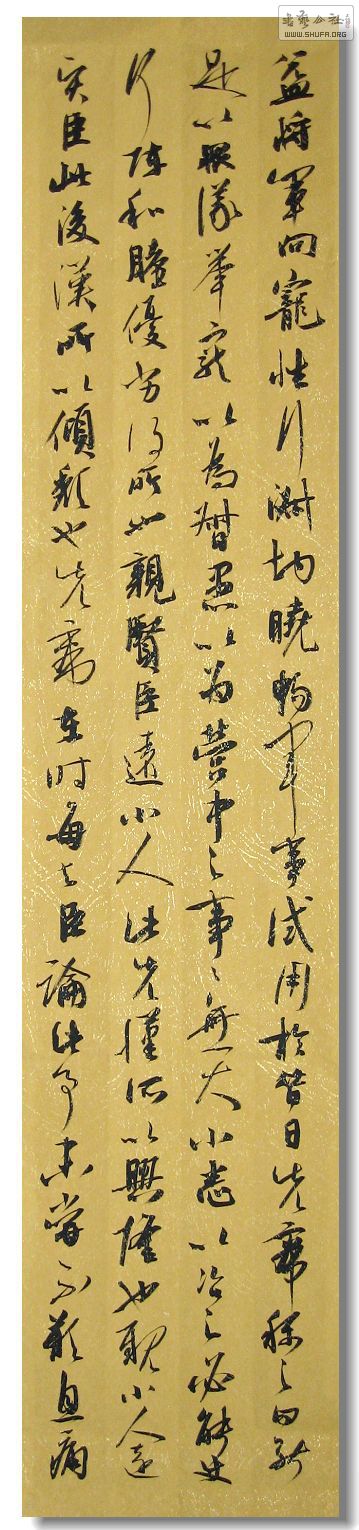 書藝公社
WWW.SHUFA.ORG
益將軍向寵性行淑均曉暢軍事試用於昔日先帝稱之曰能
是以眾議舉寵以為督愚以為營中之事〻無大小悉以咨之必能使
行陣和睦優劣得所也親賢臣遠小人此先漢所以興隆也親小人遠
賢臣此後漢所以傾頹也先帝在時每與臣論此事未嘗不歎息痛